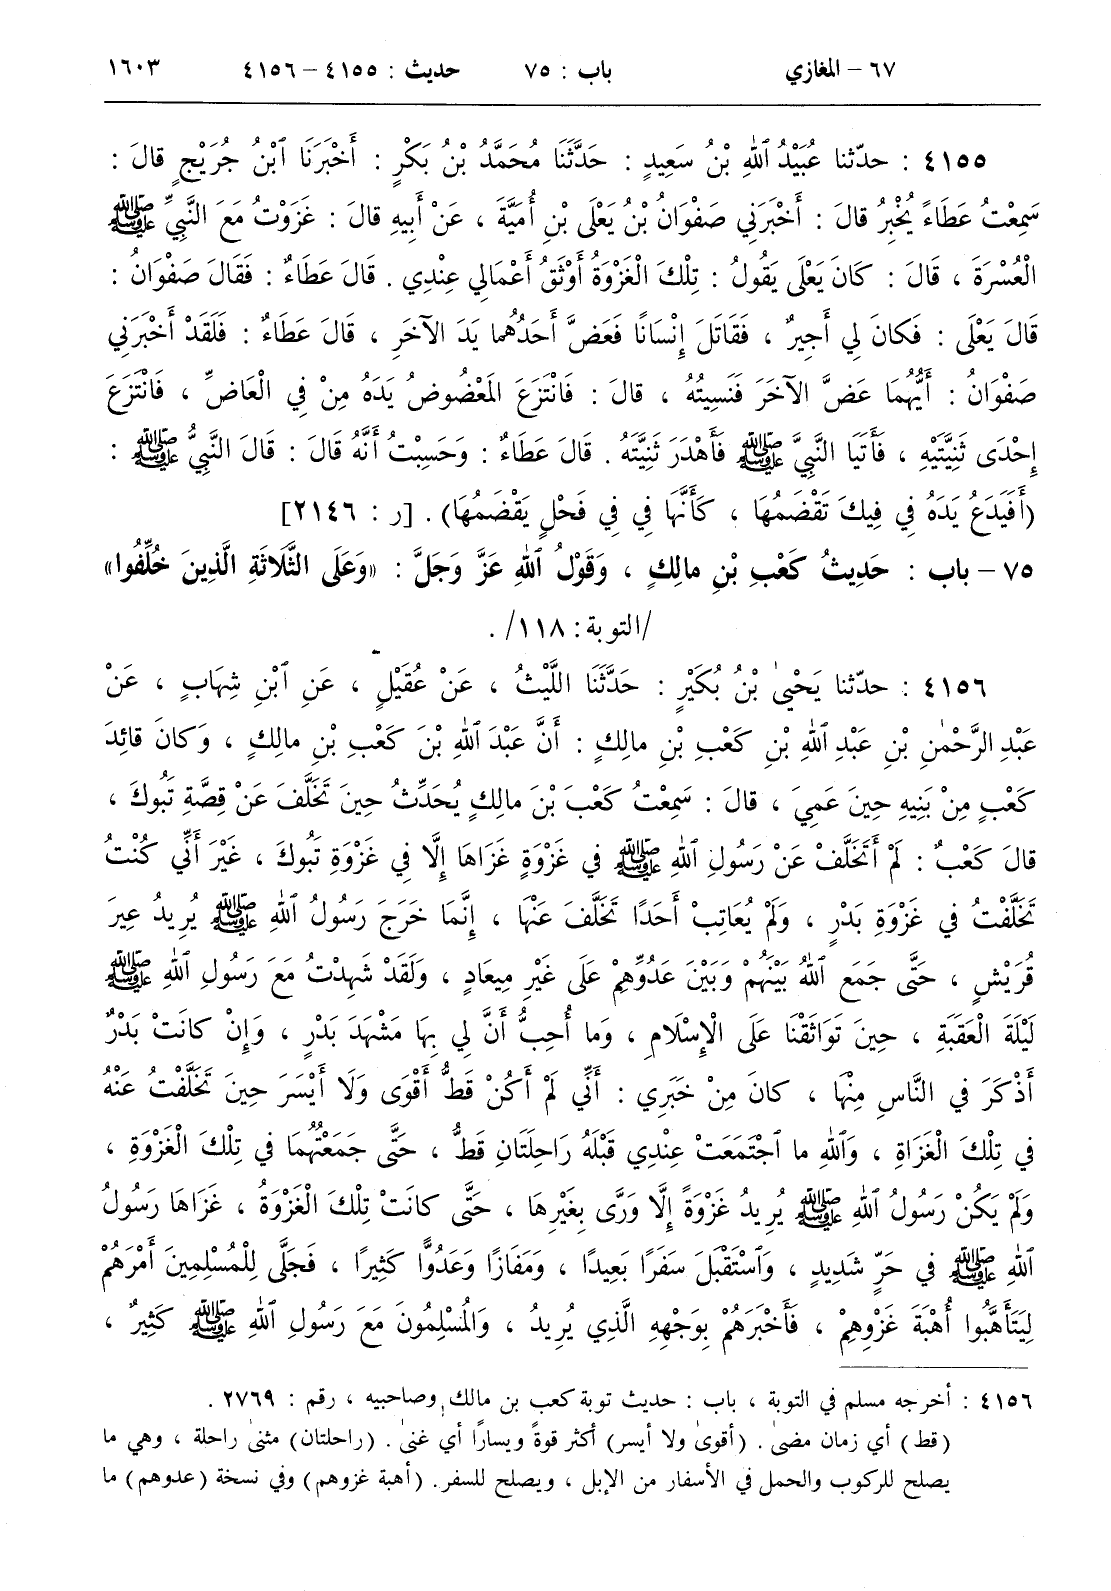 ٦٧ – المغازي باب : ٧٥ حديث : ٤١٥٥ – ٤١٥٦ ١٦٠٣
٤١٥٥ : حدّثنا عُبَيْدُ ٱللهِ بْنُ سَعِيدٍ : حَدَّثَنَا مُحَمَّدُ بْنُ بَكْرٍ : أَخْبَرَنَا ٱبْنُ جُرَيْجٍ قالَ :
سَمِعْتُ عَطَاءً يُخْبِرُ قالَ : أَخْبَرَنِي صَفْوَانُ بْنُ يَعْلَى بْنِ أُمَيَّةَ ، عَنْ أَبِيهِ قالَ : غَزَوْتُ مَعَ النَّبِيِّ ﷺ
الْعُسْرَةَ ، قَالَ : كَانَ يَعْلَى يَقُولُ : تِلْكَ الْغَزْوَةُ أَوْثَقُ أَعْمَالِي عِنْدِي . قَالَ عَطَاءٌ : فَقَالَ صَفْوَانُ :
قَالَ يَعْلَى : فَكانَ لِي أَجِيرٌ ، فَقَاتَلَ إِنْسَانًا فَعَضَّ أَحَدُهُما يَدَ الآخَرِ ، قَالَ عَطَاءٌ : فَلَقَدْ أَخْبَرَنِي
صَفْوَانُ : أَيُّهُمَا عَضَّ الآخَرَ فَنَسِيتُهُ ، قالَ : فَانْتَزَعَ المَعْضُوضُ يَدَهُ مِنْ فِي الْعَاضِّ ، فَانْتَزَعَ
إِحْدَى ثَنِيَّتَيْهِ ، فَأَتَيَا النَّبِيَّ ﷺ فَأَهْدَرَ ثَنِيَّتَهُ . قَالَ عَطَاءٌ : وَحَسِبْتُ أَنَّهُ قَالَ : قَالَ النَّبِيُّ ﷺ :
(أَفَيَدَعُ يَدَهُ فِي فِيكَ تَقْضَمُهَا ، كَأَنَّهَا فِي فِي فَحْلٍ يَقْضَمُهَا) . [ر : ٢١٤٦]
٧٥ – باب : حَدِيثُ كَعْبِ بْنِ مالِكٍ ، وَقَوْلُ ٱللهِ عَزَّ وَجَلَّ : «وَعَلَى الثَّلَاثَةِ الَّذِينَ خُلِّفُوا»
/التوبة: ١١٨/ .
٤١٥٦ : حدّثنا يَحْيىٰ بْنُ بُكَيْرٍ : حَدَّثَنَا اللَّيْثُ ، عَنْ عُقَيْلٍ ، عَنِ ٱبْنِ شِهَابٍ ، عَنْ
عَبْدِ الرَّحْمٰنِ بْنِ عَبْدِ ٱللهِ بْنِ كَعْبِ بْنِ مالِكٍ : أَنَّ عَبْدَ ٱللهِ بْنَ كَعْبِ بْنِ مالِكٍ ، وَكانَ قائِدَ
كَعْبٍ مِنْ بَنِيهِ حِينَ عَمِيَ ، قالَ : سَمِعْتُ كَعْبَ بْنَ مالِكٍ يُحَدِّثُ حِينَ تَخَلَّفَ عَنْ قِصَّةِ تَبُوكَ ،
قالَ كَعْبٌ : لَمْ أَتَخَلَّفْ عَنْ رَسُولِ ٱللهِ ﷺ فِي غَزْوَةٍ غَزَاهَا إِلَّا فِي غَزْوَةِ تَبُوكَ ، غَيْرَ أَنِّي كُنْتُ
تَخَلَّفْتُ فِي غَزْوَةِ بَدْرٍ ، وَلَمْ يُعَاتِبْ أَحَدًا تَخَلَّفَ عَنْهَا ، إِنَّمَا خَرَجَ رَسُولُ ٱللهِ ﷺ يُرِيدُ عِيرَ
قُرَيْشٍ ، حَتَّى جَمَعَ ٱللهُ بَيْنَهُمْ وَبَيْنَ عَدُوِّهِمْ عَلَى غَيْرِ مِيعَادٍ ، وَلَقَدْ شَهِدْتُ مَعَ رَسُولِ ٱللهِ ﷺ
لَيْلَةَ الْعَقَبَةِ ، حِينَ تَوَاثَقْنَا عَلَى الْإِسْلَامِ ، وَما أُحِبُّ أَنَّ لِي بِهَا مَشْهَدَ بَدْرٍ ، وَإِنْ كانَتْ بَدْرٌ
أَذْكَرَ فِي النَّاسِ مِنْهَا ، كانَ مِنْ خَبَرِي : أَنِّي لَمْ أَكُنْ قَطُّ أَقْوَى وَلَا أَيْسَرَ حِينَ تَخَلَّفْتُ عَنْهُ
فِي تِلْكَ الْغَزَاةِ ، وَٱللهِ ما ٱجْتَمَعَتْ عِنْدِي قَبْلَهُ رَاحِلَتَانِ قَطُّ ، حَتَّى جَمَعْتُهُمَا فِي تِلْكَ الْغَزْوَةِ ،
وَلَمْ يَكُنْ رَسُولُ ٱللهِ ﷺ يُرِيدُ غَزْوَةً إِلَّا وَرَّى بِغَيْرِهَا ، حَتَّى كانَتْ تِلْكَ الْغَزْوَةُ ، غَزَاهَا رَسُولُ
ٱللهِ ﷺ فِي حَرٍّ شَدِيدٍ ، وَٱسْتَقْبَلَ سَفَرًا بَعِيدًا ، وَمَفَازًا وَعَدُوًّا كَثِيرًا ، فَجَلَّى لِلْمُسْلِمِينَ أَمْرَهُمْ
لِيَتَأَهَّبُوا أُهْبَةَ غَزْوِهِمْ ، فَأَخْبَرَهُمْ بِوَجْهِهِ الَّذِي يُرِيدُ ، وَالْمُسْلِمُونَ مَعَ رَسُولِ ٱللهِ ﷺ كَثِيرٌ ،
٤١٥٦ : أخرجه مسلم في التوبة ، باب : حديث توبة كعب بن مالك وصاحبيه ، رقم : ٢٧٦٩ .
(قط) أي زمان مضىٰ . (أقوىٰ ولا أيسر) أكثر قوةً ويسارًا أي غنىٰ . (راحلتان) مثنىٰ راحلة ، وهي ما
يصلح للركوب والحمل في الأسفار من الإبل ، ويصلح للسفر. (أهبة غزوهم) وفي نسخة (عدوهم) ما